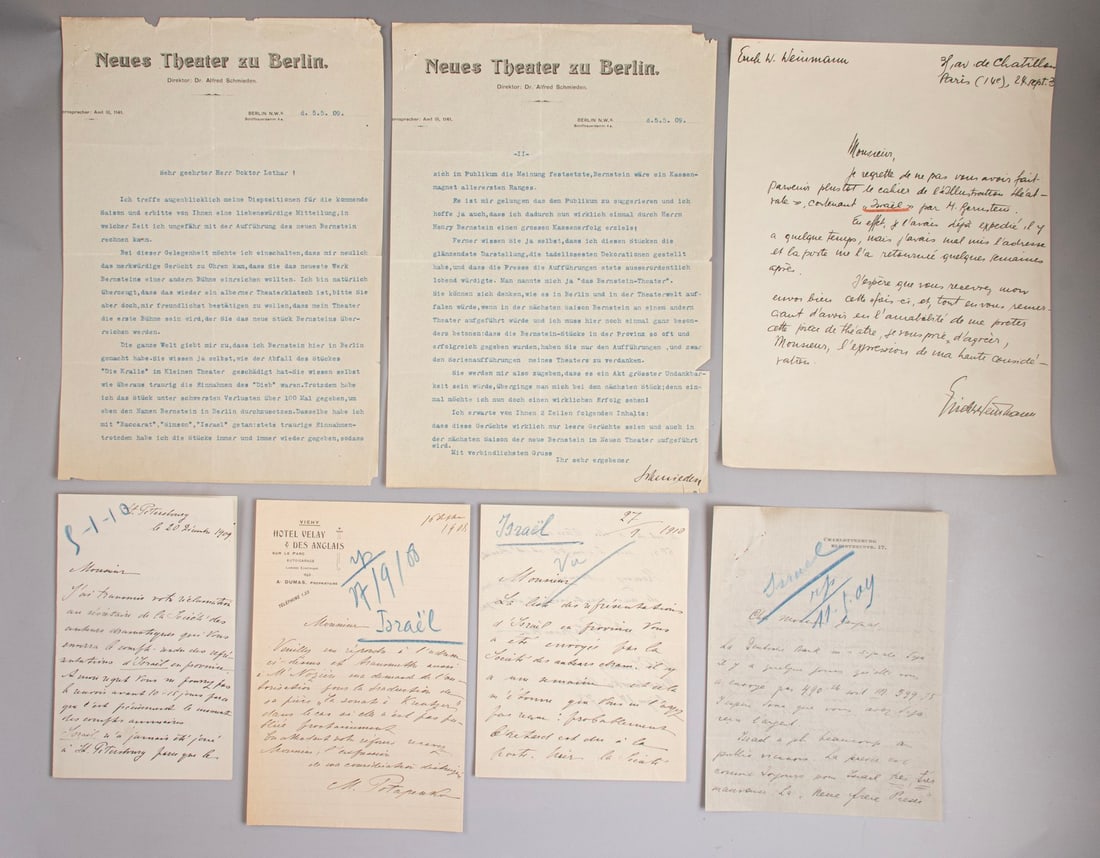 Neues Theater zu Berlin.
Direktor: Dr. Alfred Schmieden.
ernsprecher: Amt III, 1141.
BERLIN N.W. d. 5.5. 09.
Schiffbauerdamm 4a.
Sehr geehrter Herr Doktor Lothar !
Ich treffe augenblicklich meine Dispositionen für die kommende
Saison und erbitte von Ihnen eine liebenswürdige Mitteilung,in
welcher Zeit ich ungefähr mit der Aufführung des neuen Bernstein
rechnen kann.
Bei dieser Gelegenheit möchte ich einschalten,dass mir neulich
das merkwürdige Gerücht zu Ohren kam,dass Sie das neueste Werk
Bernsteins einer andern Bühne einreichen wollen. Ich bin natürlich
überzeugt,dass das wieder ein alberner Theaterklatsch ist,bitte Sie
aber doch,mir freundlichst bestätigen zu wollen,dass mein Theater
die erste Bühne sein wird,der Sie das neue Stück Bernsteins über-
reichen werden.
Die ganze Welt giebt mir zu,dass ich Bernstein hier in Berlin
gemacht habe-Sie wissen ja selbst,wie der Abfall des Stückes
"Die Kralle" im Kleinen Theater geschädigt hat-Sie wissen selbst
wie überaus traurig die Einnahmen des "Dieb" waren.Trotzdem habe
ich das Stück unter schwersten Verlusten über 100 Mal gegeben,um
eben den Namen Bernstein in Berlin durchzusetzen.Dasselbe habe ich
mit "Baccarat","Simson","Israel" getan-stets traurige Einnahmen-
trotzdem habe ich die Stücke immer und immer wieder gegeben,sodass
Neues Theater zu Berlin.
Direktor: Dr. Alfred Schmieden.
ernsprecher: Amt III, 1141.
BERLIN N.W. d.5.5. 09.
Schiffbauerdamm 4a.
-II-
sich im Publikum die Meinung festsetzte,Bernstein wäre ein Kassen-
magnet allerersten Ranges.
Es ist mir gelungen das dem Publikum zu suggerieren und ich
hoffe ja auch,dass ich dadurch nun wirklich einmal durch Herrn
Henry Bernstein einen grossen Kassenerfolg erziele;
Ferner wissen Sie ja selbst,dass ich diesen Stücken die
glänzendste Darstellung,die tadellosesten Dekorationen gestellt
habe,und dass die Presse die Aufführungen stets ausserordentlich
lobend würdigte. Man nannte mich ja "das Bernstein-Theater".
Sie können sich denken,wie es in Berlin und in der Theaterwelt auf-
fallen würde,wenn in der nächsten Saison Bernstein an einem andern
Theater aufgeführt würde und ich muss hier noch einmal ganz beson-
ders betonen:dass die Bernstein-Stücke in der Provinz so oft und
erfolgreich gegeben wurden,haben Sie nur den Aufführungen ,und zwar
den Serienaufführungen meines Theaters zu verdanken.
Sie werden mir also zugeben,dass es ein Akt grösster Undankbar-
keit sein würde,übergings man mich bei dem nächsten Stück;denn ein-
mal möchte ich nun doch einen wirklichen Erfolg sehen!
Ich erwarte von Ihnen 2 Zeilen folgenden Inhalts:
dass diese Gerüchte wirklich nur leere Gerüchte seien und auch in
der nächsten Saison der neue Bernstein im Neuen Theater aufgeführt
wird.
Mit verbindlichsten Gruss
Ihr sehr ergebener
Schmieden
Erich W. Weinmann
av de Chatillon
Paris (14e), 24 sept.
Monsieur,
Je regrette de ne pas vous avoir fait
parvenir plus tôt le cahier de l'Illustration théât-
rale », contenant „Israël » par M. Bernstein.
En effet, je l'avais déjà expédié il y
a quelque temps, mais j'avais mal mis l'adresse
et la poste me l'a retourné quelques semaines
après.
J'espère que vous recevrez mon
envoi bien cette fois-ci, et, tout en vous remer-
ciant d'avoir eu l'amabilité de me prêter
cette pièce de théâtre, je vous prie, d'agréer,
Monsieur, l'expression de ma haute considé-
ration
Erich Weinmann
5-1-10
St. Pétersbourg
le 20 Décembre 1909
Monsieur
J'ai transmis votre réclamation
au secrétaire de la Société des
auteurs dramatiques qui vous
enverra le compte rendu des repré-
sentations d'Israël en province.
A mon regret vous ne pourrez pas
le avant 10-15 jours parce
que c'est précisément le moment
des comptes
Israël n'a jamais été joué
à St. Pétersbourg parce que le
VICHY
HOTEL VELAY
& DES ANGLAIS
SUR LE PARC
AUTOGARAGE
A. DUMAS, PROPRIÉTAIRE
TÉLÉPHONE
1908
17/9/08
Monsieur
Israël
Veuillez en réponse à l'adresse
ci-dessus et transmettre aussi
à Mr Nozière une demande de l'au-
torisation pour la traduction de
sa pièce "La sonate à Kreutzer"
dans le cas où elle n'est pas pu-
bliée prochainement
En attendant votre réponse recevez
Monsieur, l'expression
de ma considération distinguée
M. Potapenko
Israël
27/1 1910
Monsieur
La liste des représentations
d'Israël en province vous
a été envoyée par la
Société des auteurs dram. il y
a une semaine
m'étonne que vous ne l'ayez
pas reçue: probablement
est dû à la
poste. la Société
CHARLOTTENBURG
17.
Israel
11.5.09
Cher Monsieur
La Central Bank
il y a quelque jours qu'elle vous
a envoyé
J'espère donc que vous avez déjà
reçu l'argent.
Israel a plu beaucoup au
public viennois. La presse est
comme toujours pour Israel pas très
mauvaise. La „Neue freie Presse"